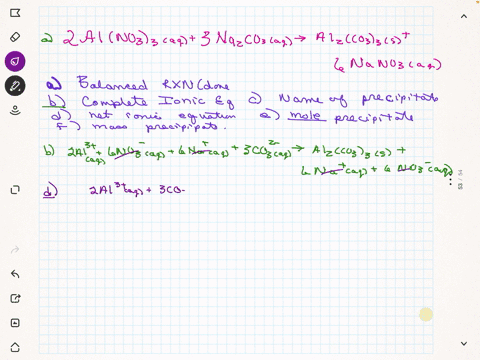 a) 2Al(NO3)3(aq) + 3Na2CO3(aq) → Al2(CO3)3(s) +
6 NaNO3(aq)
a) Balanced RXN (done
b) Complete Ionic Eq c) Name of precipitate
d) net ionic equation e) mole precipitate
f) mass precipitate.
b) 2Al3+(aq) + 6NO3-(aq) + 6Na+(aq) + 3CO3 2-(aq) → Al2(CO3)3(s) +
6 Na+(aq) + 6 NO3-(aq)
d) 2Al3+(aq) + 3CO
53 / 54